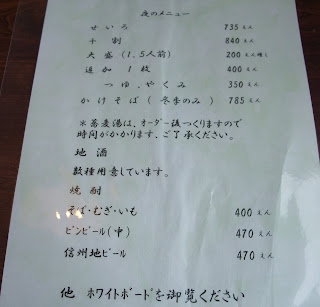 夜のメニュー
せいろ 735えん
十割 840えん
大盛(1.5人前) 200えん増し
追加1枚 400えん
つゆ、やくみ 350えん
かけそば(冬季のみ) 785えん
*蕎麦湯は、オーダー後つくりますので
時間がかかります、ご了承ください。
地酒
数種用意しています。
焼酎
そば・むぎ・いも 400えん
ビンビール(中) 470えん
信州地ビール 470えん
他 ホワイトボードを御覧ください